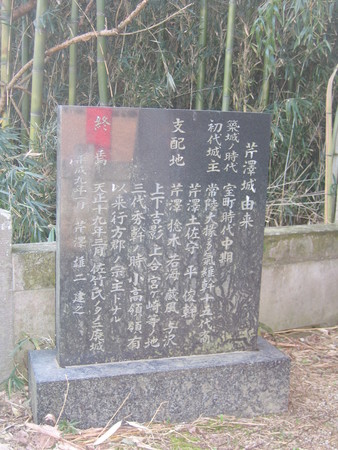 芹澤城由来
築城ノ時代 室町時代中期
初代城主 常陸大掾多気維幹十五代裔
芹澤土佐守 平 俊幹
支配地 芹澤 捻木 若海 蔵風 与沢
上下吉影 上合 宮ヶ崎等ノ地
三代秀幹ノ時小高領領有
以来行方郡ノ宗主トナル
終焉 天正十九年三月佐竹氏ノタメニ廃城
平成九年一月 芹澤 雄二 建之